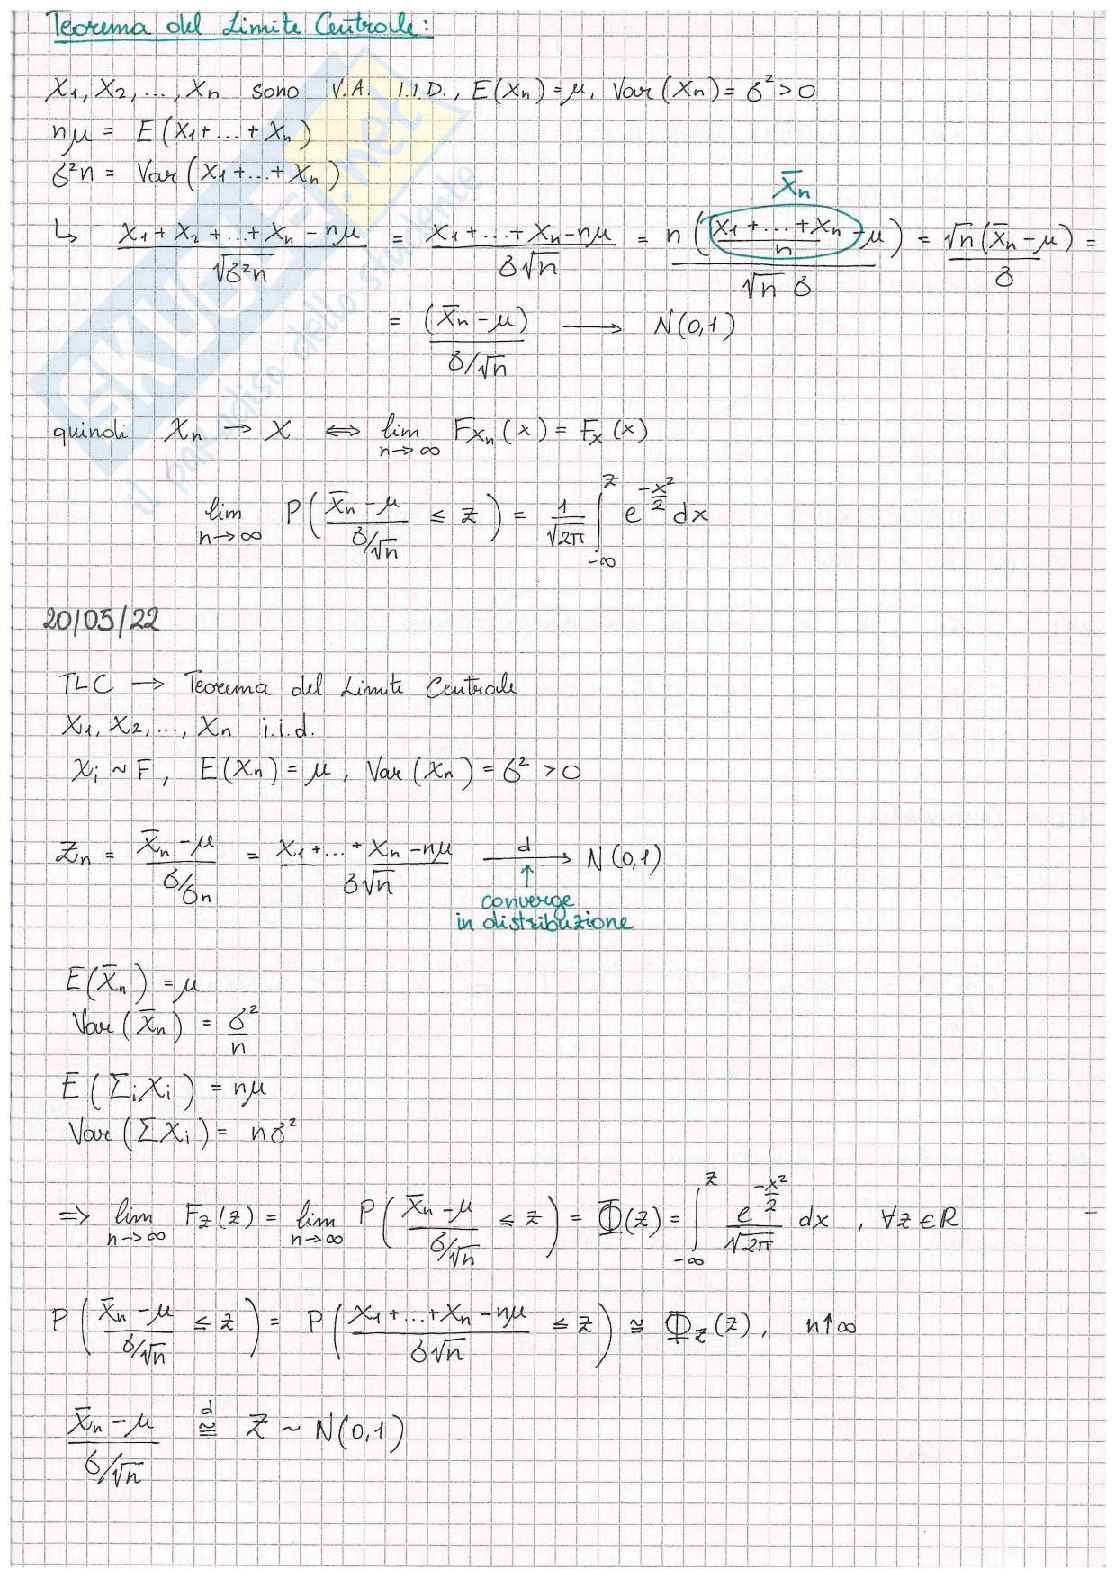 Teorema del Limite Centrale:
X₁, X₂, ..., Xₙ sono V.A. I.I.D., E(Xₙ) = μ, Var(Xₙ) = σ² > 0
nμ = E(X₁+...+Xₙ)
σ²n = Var(X₁+...+Xₙ)
X̄ₙ
↳ (X₁+X₂+...+Xₙ-nμ)/√(σ²n) = (X₁+...+Xₙ-nμ)/(σ√n) = n((X₁+...+Xₙ)/n - μ)/(√n σ) = √n(X̄ₙ-μ)/σ =
= (X̄ₙ-μ)/(σ/√n) → N(0,1)
quindi Xₙ → X ⟺ lim n→∞ F_Xₙ(x) = F_X(x)
lim n→∞ P((X̄ₙ-μ)/(σ/√n) ≤ z) = 1/√(2π) ∫_{-∞}^{z} e^{-x²/2} dx
20/05/22
TLC → Teorema del Limite Centrale
X₁, X₂, ..., Xₙ i.i.d.
Xᵢ ~ F, E(Xₙ) = μ, Var(Xₙ) = σ² > 0
Zₙ = (X̄ₙ-μ)/(σ/σₙ) = (X₁+...+Xₙ-nμ)/(σ√n) →ᵈ N(0,1)
↑
converge
in distribuzione
E(X̄ₙ) = μ
Var(X̄ₙ) = σ²/n
E(ΣᵢXᵢ) = nμ
Var(ΣXᵢ) = nσ²
=> lim n→∞ F_Z(z) = lim n→∞ P((X̄ₙ-μ)/(σ/√n) ≤ z) = Φ(z) = ∫_{-∞}^{z} e^{-x²/2}/√(2π) dx, ∀z∈R
P((X̄ₙ-μ)/(σ/√n) ≤ z) = P((X₁+...+Xₙ-nμ)/(σ√n) ≤ z) ≅ Φ_Z(z), n↑∞
(X̄ₙ-μ)/(σ/√n) ≅ᵈ Z ~ N(0,1)
SKUOLA.net
il paradiso dello studente